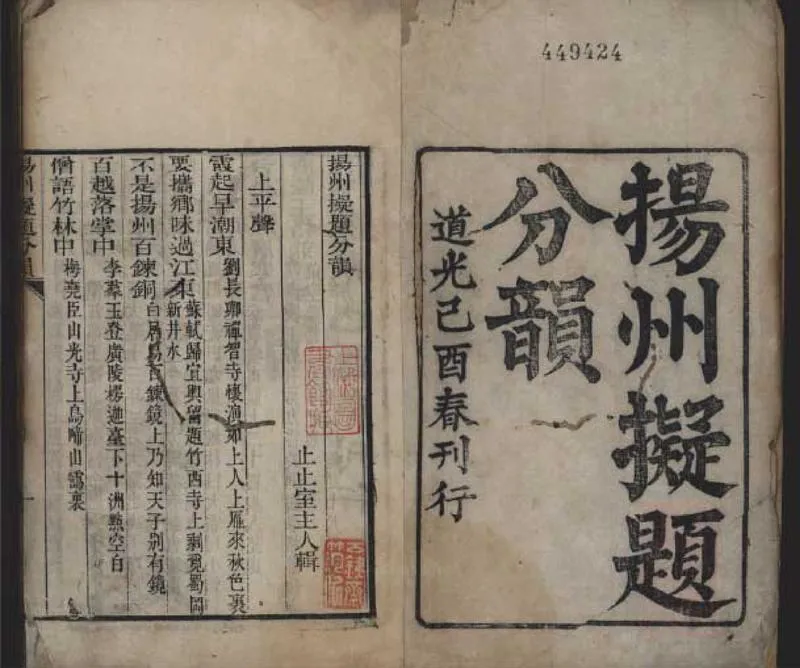 449424
揚州擬題
分韻
道光己酉春刊行
揚州擬題分韻
止止室主人輯
上平聲
霞起早潮東 劉長卿禪智寺懷演上人上雁來秋色裏
要攜鄉味過江東 蘇軾歸宜興留題竹西寺上剩覓蜀岡新井水
不是揚州百鍊銅 白居易百鍊鏡上乃知天子別有鏡
百越落掌中 李羣玉登廣陵楞迦臺下十洲點空白
僧語竹林中 梅堯臣山光寺上鳥啼山靄裏
揚州擬題分韻
一